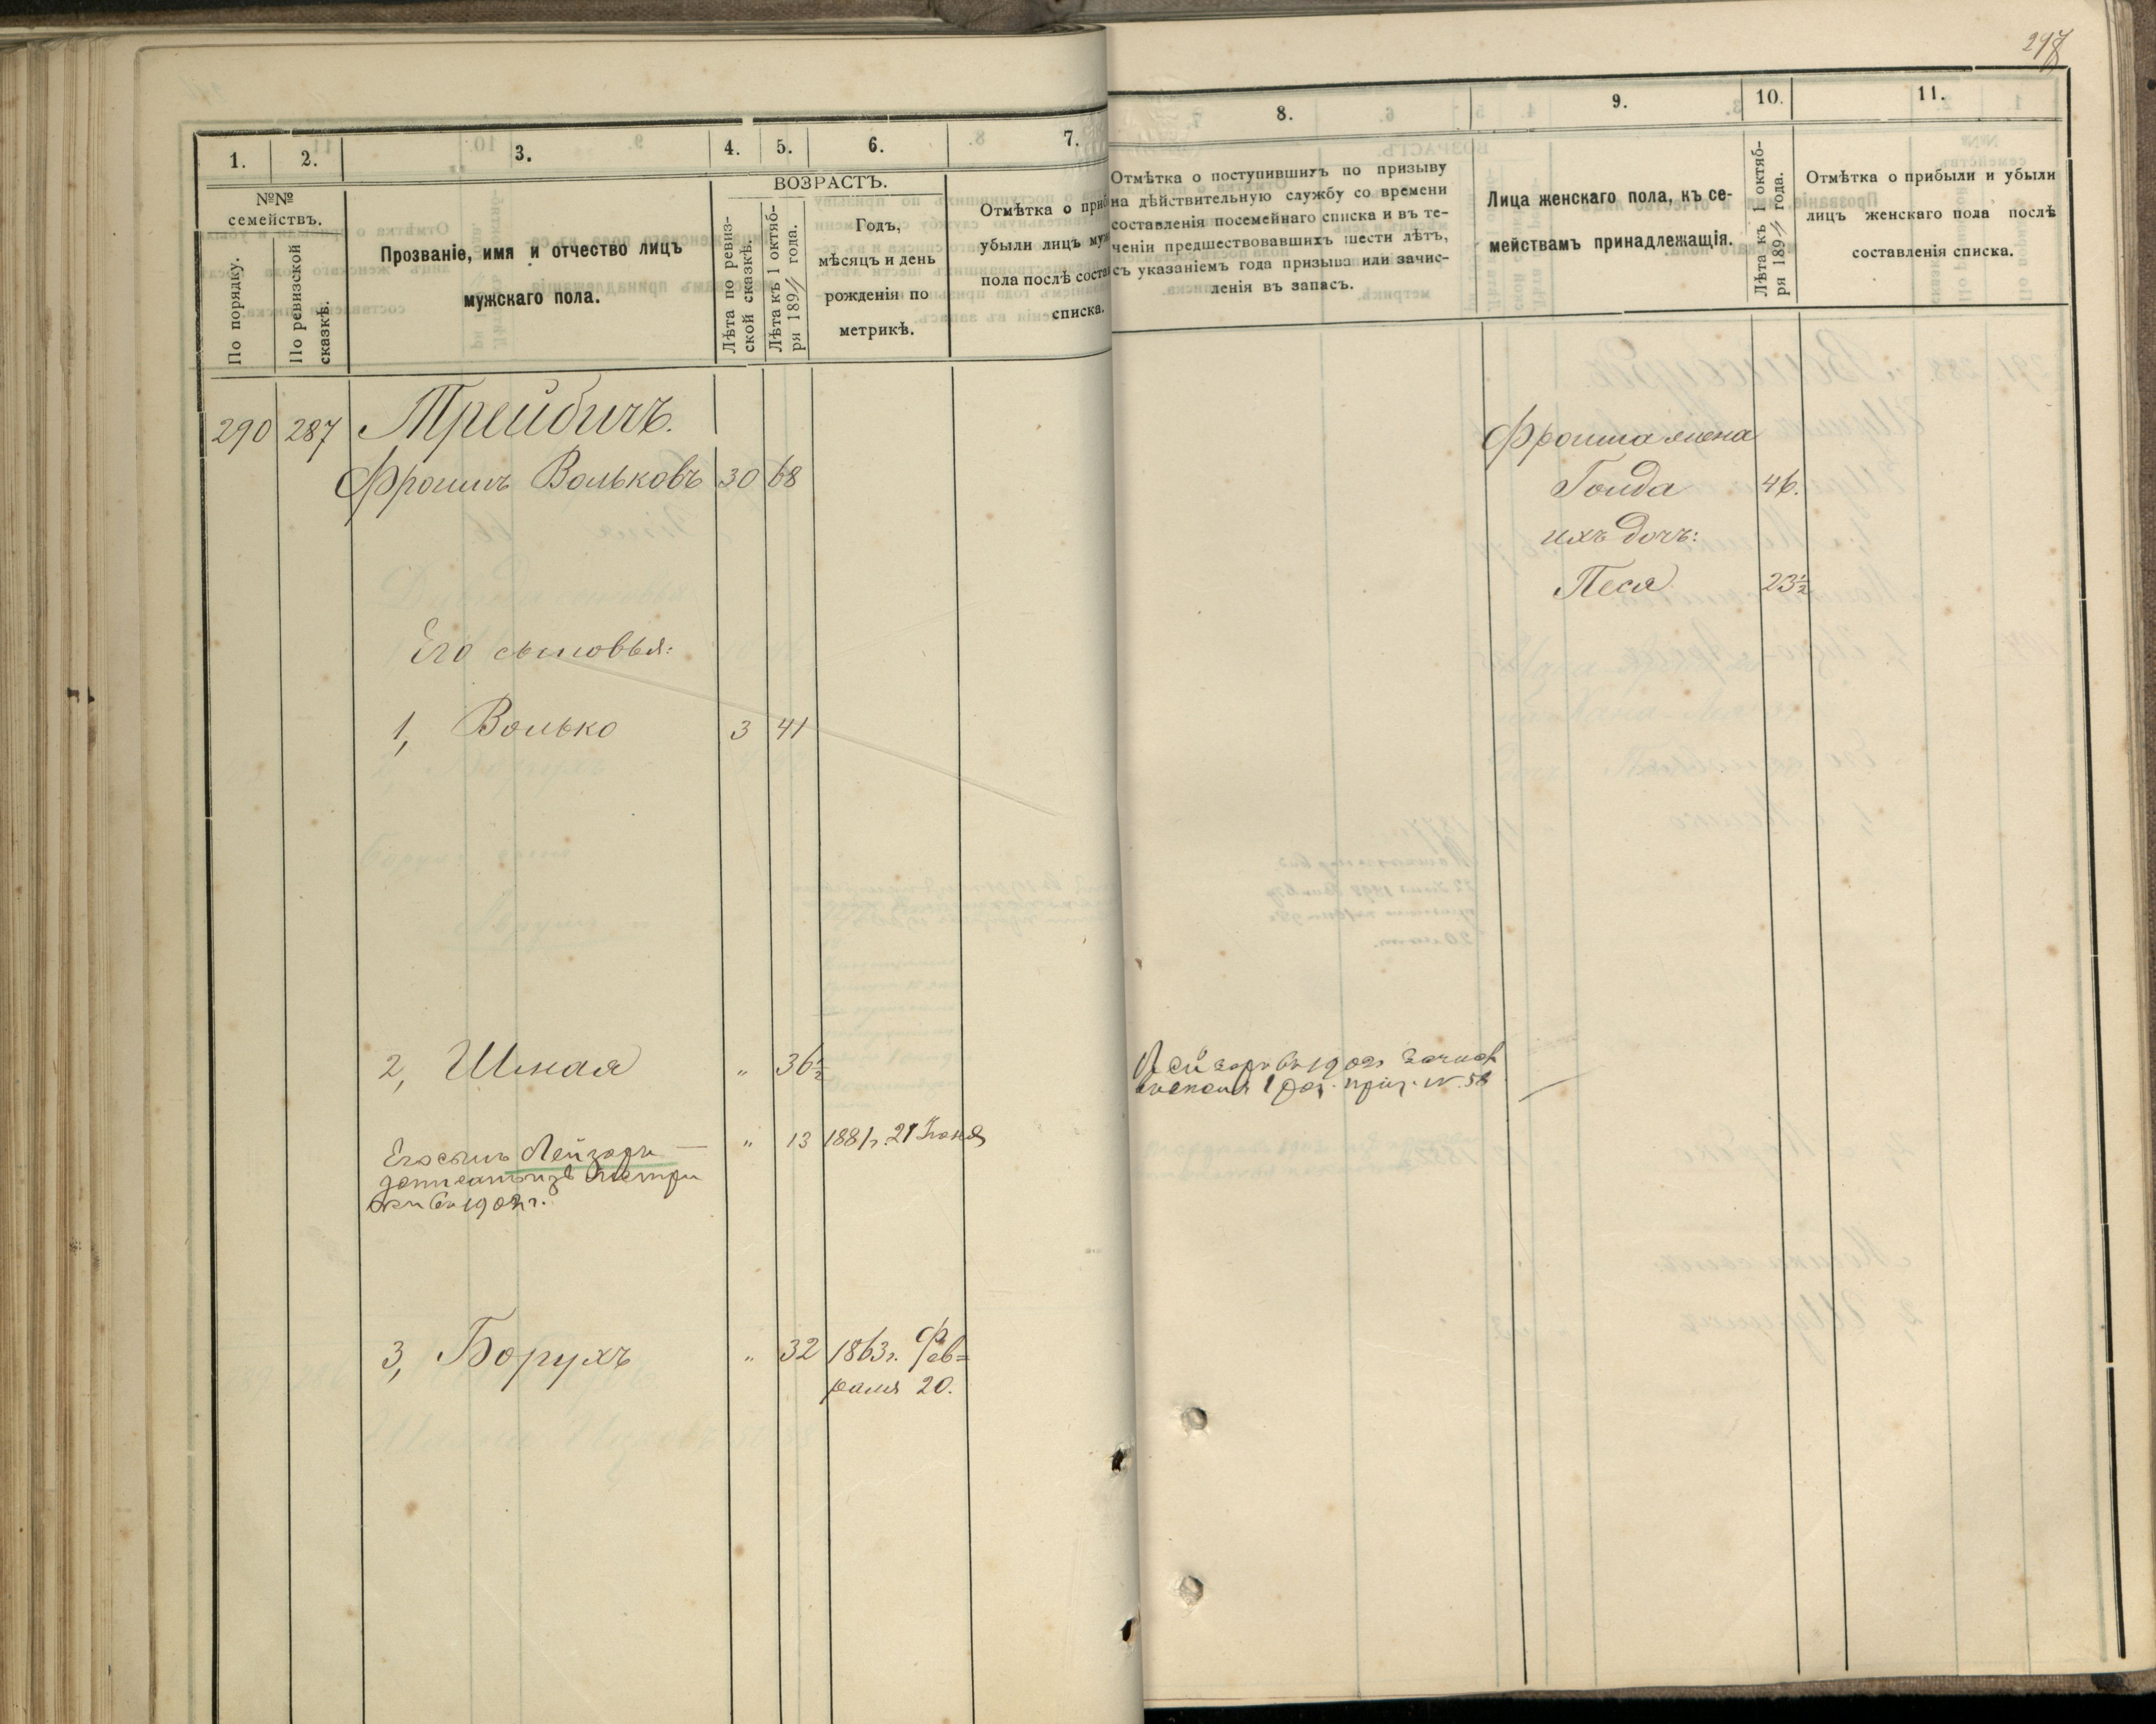 297
1.
2.
3.
4.
5.
6.
7.
№№
семействъ.
По порядку.
По ревизской
сказкѣ.
Прозваніе, имя и отчество лицъ
мужскаго пола.
ВОЗРАСТЪ.
Лѣта по ревиз-
ской сказкѣ.
Лѣта къ 1 октяб-
ря 189 года.
Годъ,
мѣсяцъ и день
рожденія по
метрикѣ.
Отмѣтка о приб
убыли лицъ муж
пола послѣ состав
списка.
290 287 Трейбичъ.
Фроимъ Вольковъ 30 68
Его сыновья:
1, Волько 3 41
2, Шмая " 36½
Его сынъ Лейзоръ — " 13 1881 г. 21 Іюня
записанъ изъ метри
ки въ 1902 г.
3, Борухъ " 32 1863 г. Фев=
раля 20.
8.
9.
10.
11.
Отмѣтка о поступившихъ по призыву
на дѣйствительную службу со времени
составленія посемейнаго списка и въ те-
ченіи предшествовавшихъ шести лѣтъ,
съ указаніемъ года призыва или зачис-
ленія въ запасъ.
Лица женскаго пола, къ се-
мействамъ принадлежащія.
Лѣта къ 1 октяб-
ря 189 года.
Отмѣтка о прибыли и убыли
лицъ женскаго пола послѣ
составленія списка.
Фроима жена
Голда 46.
ихъ дочь:
Песя 23½
Лейзоръ въ 1902
1 приз. №